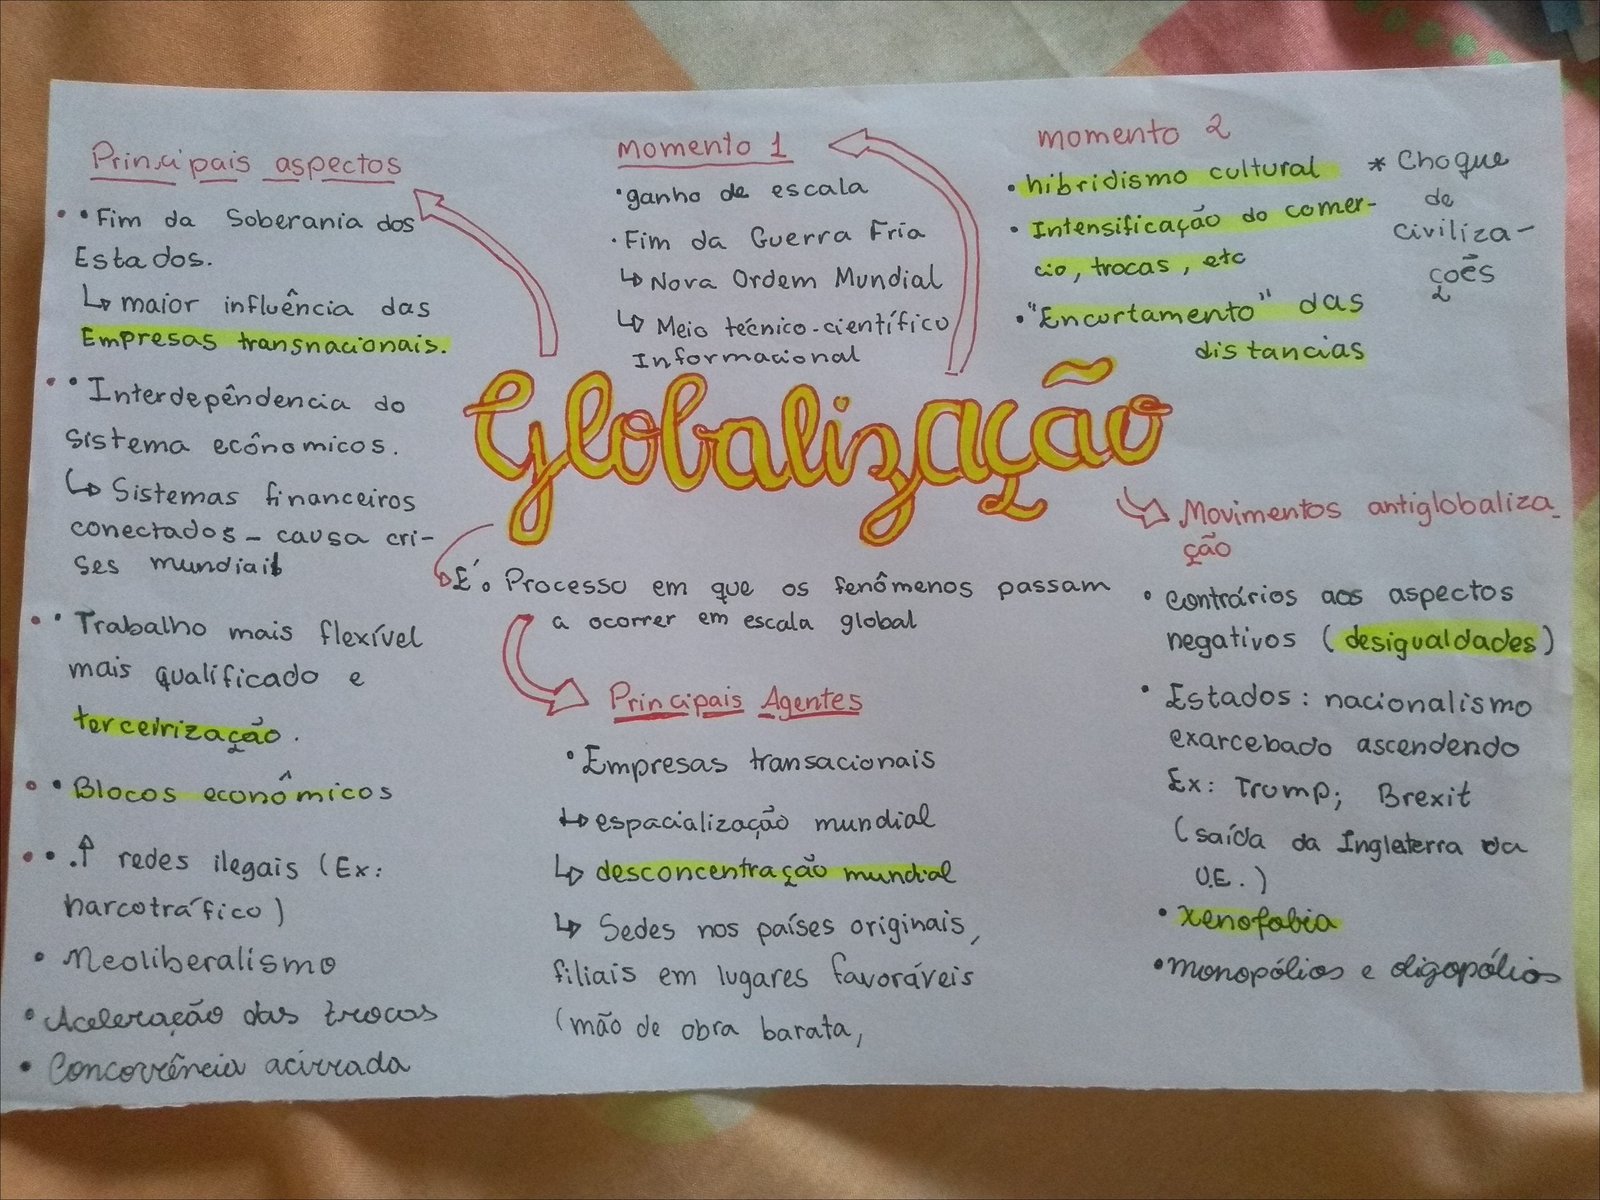 Principais aspectos
• Fim da Soberania dos
Estados.
↳ maior influência das
Empresas transnacionais.
• Interdepêndencia do
sistema ecônomicos.
↳ Sistemas financeiros
conectados - causa cri-
ses mundiais
• Trabalho mais flexível
mais qualificado e
terceirização.
• Blocos econômicos
• .↑ redes ilegais (Ex:
narcotráfico)
• Neoliberalismo
• Aceleração das trocas
• Concorrência acirrada
momento 1
• ganho de escala
• Fim da Guerra Fria
↳ Nova Ordem Mundial
↳ Meio técnico-científico
Informacional
momento 2
• hibridismo cultural
• Intensificação do comer-
cio, trocas, etc
• "Encurtamento" das
distancias
* Choque
de
civiliza-
çoẽs
Globalização
É o Processo em que os fenômenos passam
a ocorrer em escala global
Principais Agentes
• Empresas transacionais
↳ espacialização mundial
↳ desconcentração mundial
↳ Sedes nos países originais,
filiais em lugares favoráveis
(mão de obra barata,
Movimentos antiglobaliza-
ção
• contrários aos aspectos
negativos (desigualdades)
• Estados: nacionalismo
exarcebado ascendendo
Ex: Trump; Brexit
(saída da Inglaterra da
U.E.)
• xenofobia
• monopólios e oligopólios